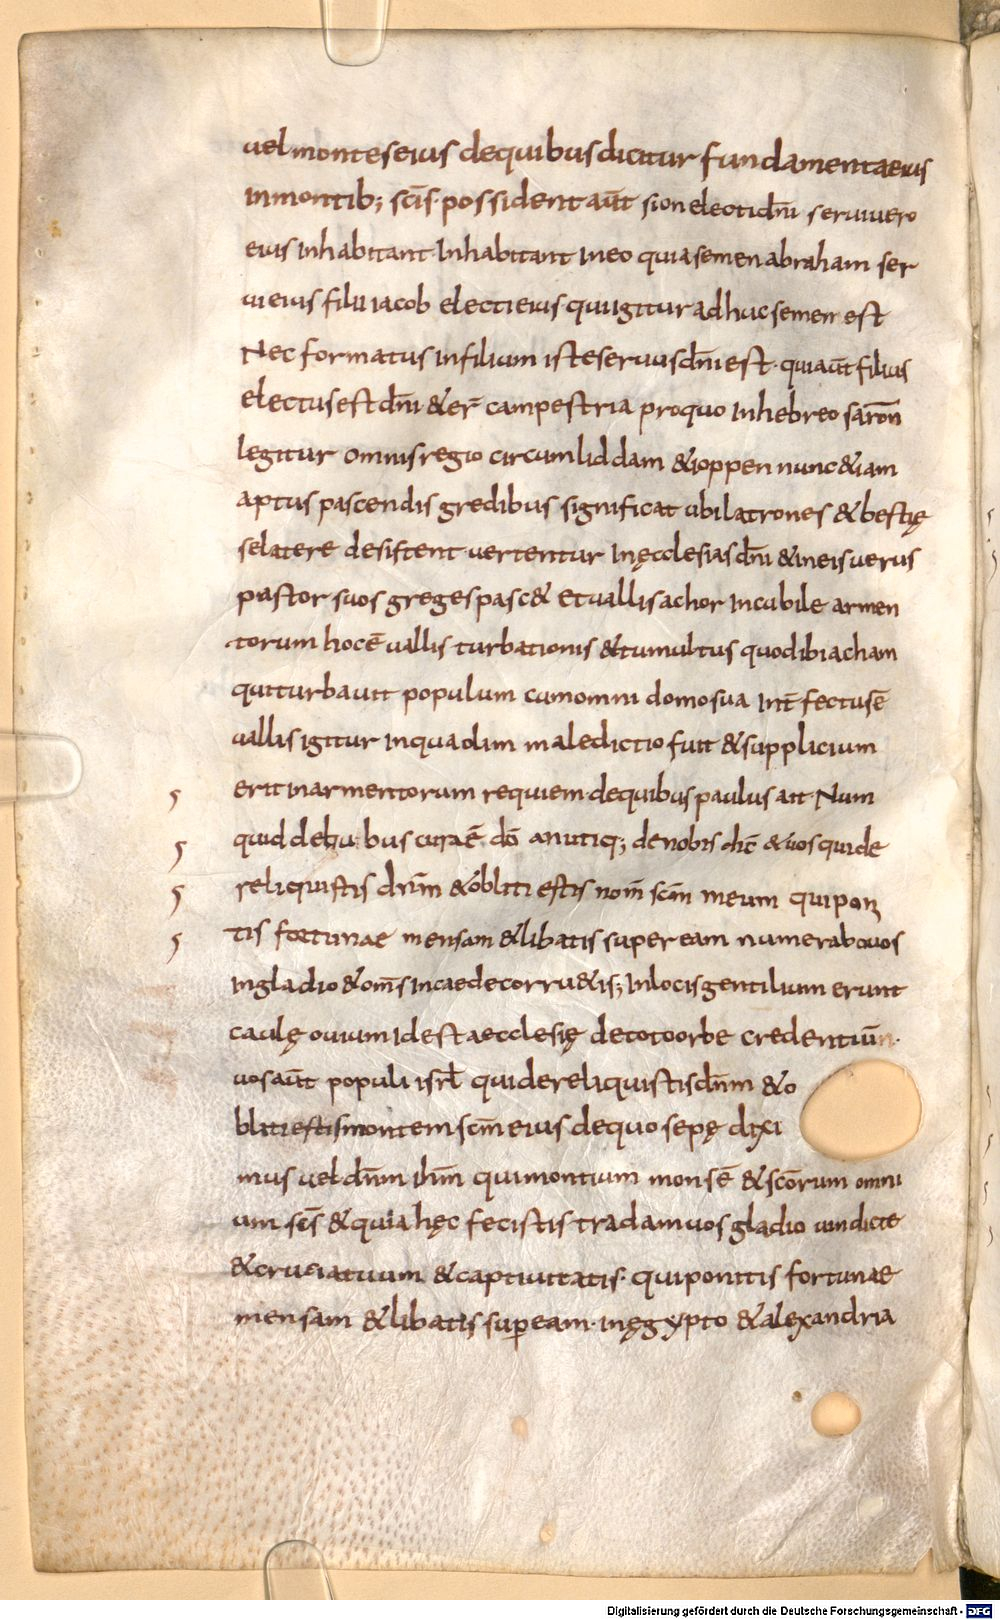 uel monteseius dequibus dicitur fundamentaeius
inmontib; sc̄is· possident aūt sion electidn̄i seruiuero
eius inhabitant· Inhabitant ineo quiasemen abraham ser
uieius filii iacob electieius· quiigitur adhuc semen est
Nec formatus infilium isteseruusdn̄iest· quiaūt filius
electusestdn̄i &er̄ campestria proquo inhebreo sarōn
legitur omnisregio circumliddam &ioppen nunc&iam
aptus pascendis gredibus significat ubilatrones &bestię
selatere desistent uertentur inęcclesias dn̄i &ineisuerus
pastor suos gregespasc& etuallisachor incubile armen
torum hocē uallis turbationis &tumultus quodibiacham
quiturbauit populum cumomni domosua int̄fectusē
uallis igitur inqua olim maledictio fuit &supplicium
erit inarmentorum requiem· dequibus paulus ait· Num
quid debubus curaē dō anutiq; denobis dic̄ &uos quide
reliquistis dn̄m &obliti estis nom̄ sc̄m meum quipon
tis fortunae mensam &libatis super eam numerabouos
ingladio &om̄s incaedecorru&is; Inlocisgentilium erunt
caulę ouium idest aecclesię detotoorbe credentiūm·
uosaūt populi isrl̄ quidereliquistisdn̄m &o
blitiestismontem sc̄m eius dequo sepę dixi
mus uel dn̄m ih̄m quimontium monsē &sc̄orum omni
um sc̄s &quia hęc fecistis tradamuos gladio uindicte
&cruciatuum &captiuitatis· quiponitis fortunae
mensam &libatis sup̄eam· inęgypto &alexandria
Digitalisierung gefördert durch die Deutsche Forschungsgemeinschaft - DFG